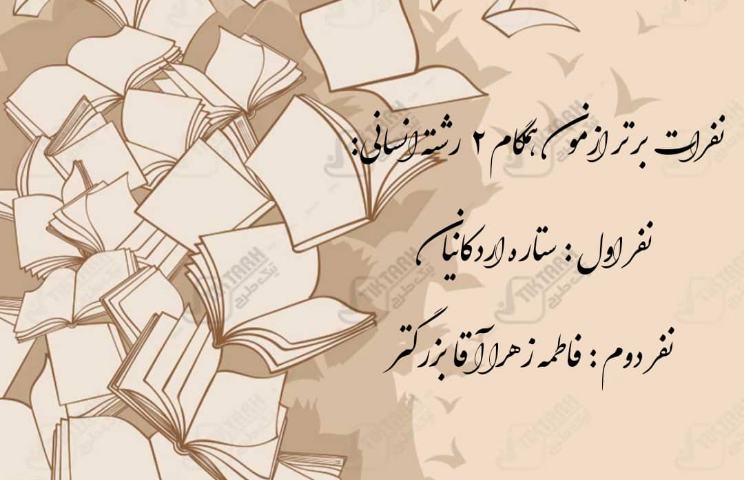 نفرات برتر ازمون همگام ۲ رشته انسانی:
نفر اول : ستاره اردکانیان
نفر دوم : فاطمه زهرا آقا بزرگتر